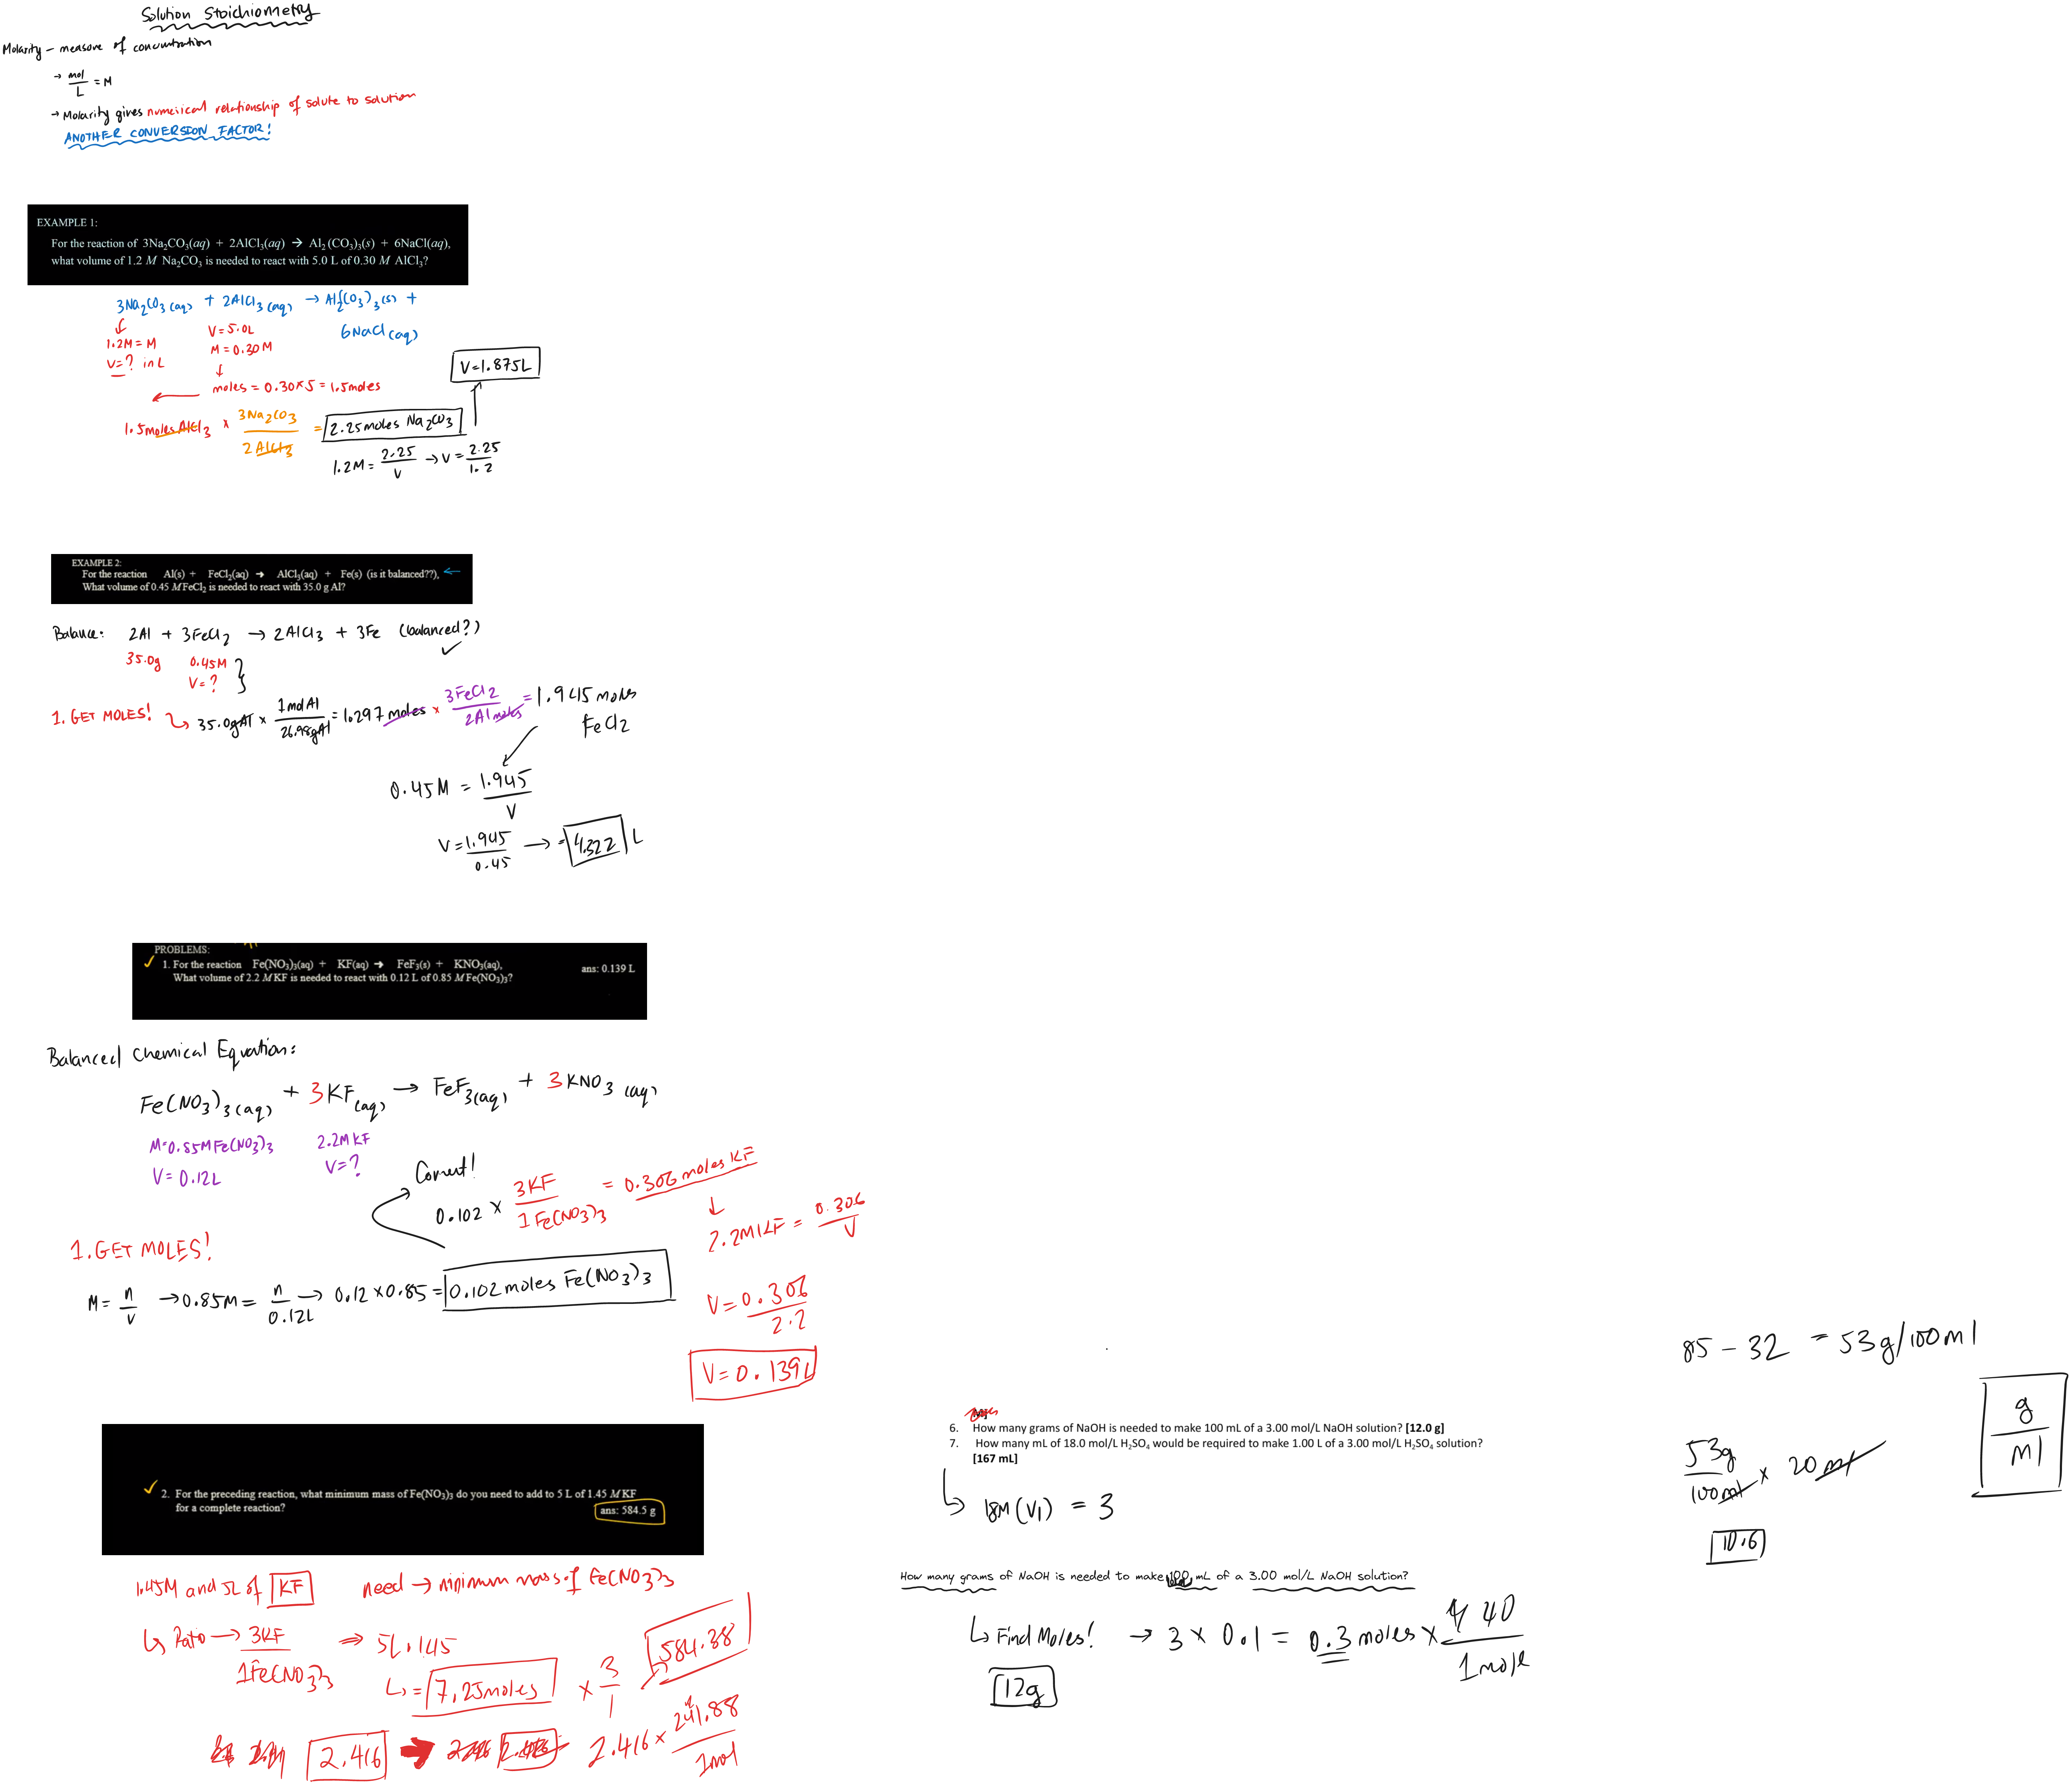 Solution Stoichiometry
Molarity – measure of concentration
→ mol/L = M
→ Molarity gives numerical relationship of solute to solution
ANOTHER CONVERSION FACTOR!
EXAMPLE 1:
For the reaction of 3Na₂CO₃(aq) + 2AlCl₃(aq) → Al₂(CO₃)₃(s) + 6NaCl(aq),
what volume of 1.2 M Na₂CO₃ is needed to react with 5.0 L of 0.30 M AlCl₃?
3Na₂CO₃(aq) + 2AlCl₃(aq) → Al₂(CO₃)₃(s) +
6NaCl(aq)
↓
1.2M = M
V=? in L
V=5.0L
M=0.30M
↓
moles = 0.30×5 = 1.5moles
V=1.875L
1.5moles AlCl₃ × 3Na₂CO₃/2AlCl₃ = 2.25moles Na₂CO₃
1.2M = 2.25/V → V = 2.25/1.2
EXAMPLE 2:
For the reaction Al(s) + FeCl₂(aq) → AlCl₃(aq) + Fe(s) (is it balanced??), ←
What volume of 0.45 M FeCl₂ is needed to react with 35.0 g Al?
Balance: 2Al + 3FeCl₂ → 2AlCl₃ + 3Fe (balanced?) ✓
35.0g
0.45M
V=?
1. GET MOLES! ↳ 35.0gAl × 1molAl/26.98gAl = 1.297 moles × 3FeCl₂/2Al moles = 1.945 moles
FeCl₂
0.45M = 1.945/V
V = 1.945/0.45 → = 4.322 L
PROBLEMS:
✓ 1. For the reaction Fe(NO₃)₃(aq) + KF(aq) → FeF₃(s) + KNO₃(aq),
What volume of 2.2 M KF is needed to react with 0.12 L of 0.85 M Fe(NO₃)₃?
ans: 0.139 L
Balanced Chemical Equation:
Fe(NO₃)₃(aq) + 3KF(aq) → FeF₃(aq) + 3KNO₃(aq)
M=0.85M Fe(NO₃)₃
V= 0.12L
2.2M KF
V=?
Convert!
0.102 × 3KF/1Fe(NO₃)₃ = 0.306 moles KF
↓
2.2M KF = 0.306/V
1. GET MOLES!
M = n/v → 0.85M = n/0.12L → 0.12×0.85 = 0.102 moles Fe(NO₃)₃
V = 0.306/2.2
V = 0.139L
✓ 2. For the preceding reaction, what minimum mass of Fe(NO₃)₃ do you need to add to 5 L of 1.45 M KF
for a complete reaction?
ans: 584.5 g
1.45M and 5L of KF need → minimum mass of Fe(NO₃)₃
↳ Ratio → 3KF/1Fe(NO₃)₃ ⇒ 5L.145
↳ = 7.25moles × 3/1
584.38
2.416 → 2.416 × 241.88/1mol
6. How many grams of NaOH is needed to make 100 mL of a 3.00 mol/L NaOH solution? [12.0 g]
7. How many mL of 18.0 mol/L H₂SO₄ would be required to make 1.00 L of a 3.00 mol/L H₂SO₄ solution?
[167 mL]
↳ 18M(V1) = 3
How many grams of NaOH is needed to make 100 mL of a 3.00 mol/L NaOH solution?
↳ Find Moles! → 3 × 0.1 = 0.3 moles × 40/1mole
12g
85 – 32 = 53g/100ml
g/ml
53g/100ml × 20ml
10.6